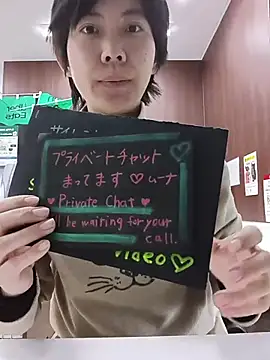 Eats
サイ
プライベートチャット
まってます♡ムーナ
♥Private Chat♥
I'll be wairing for your
call.
Video♡